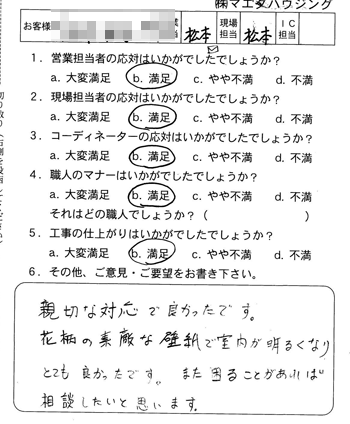 ㈱マエダハウジング
お客様 営業担当 松本 現場担当 松本 IC担当
1．営業担当者の応対はいかがでしたでしょうか？
a. 大変満足 b. 満足 c. やや不満 d. 不満
2．現場担当者の応対はいかがでしたでしょうか？
a. 大変満足 b. 満足 c. やや不満 d. 不満
3．コーディネーターの応対はいかがでしたでしょうか？
a. 大変満足 b. 満足 c. やや不満 d. 不満
4．職人のマナーはいかがでしたでしょうか？
a. 大変満足 b. 満足 c. やや不満 d. 不満
それはどの職人でしょうか？（ ）
5．工事の仕上がりはいかがでしたでしょうか？
a. 大変満足 b. 満足 c. やや不満 d. 不満
6．その他、ご意見・ご要望をお書き下さい。
親切な対応で良かったです。
花柄の素敵な壁紙で室内が明るくなり
とても良かったです。また困ることがあれば
相談したいと思います。